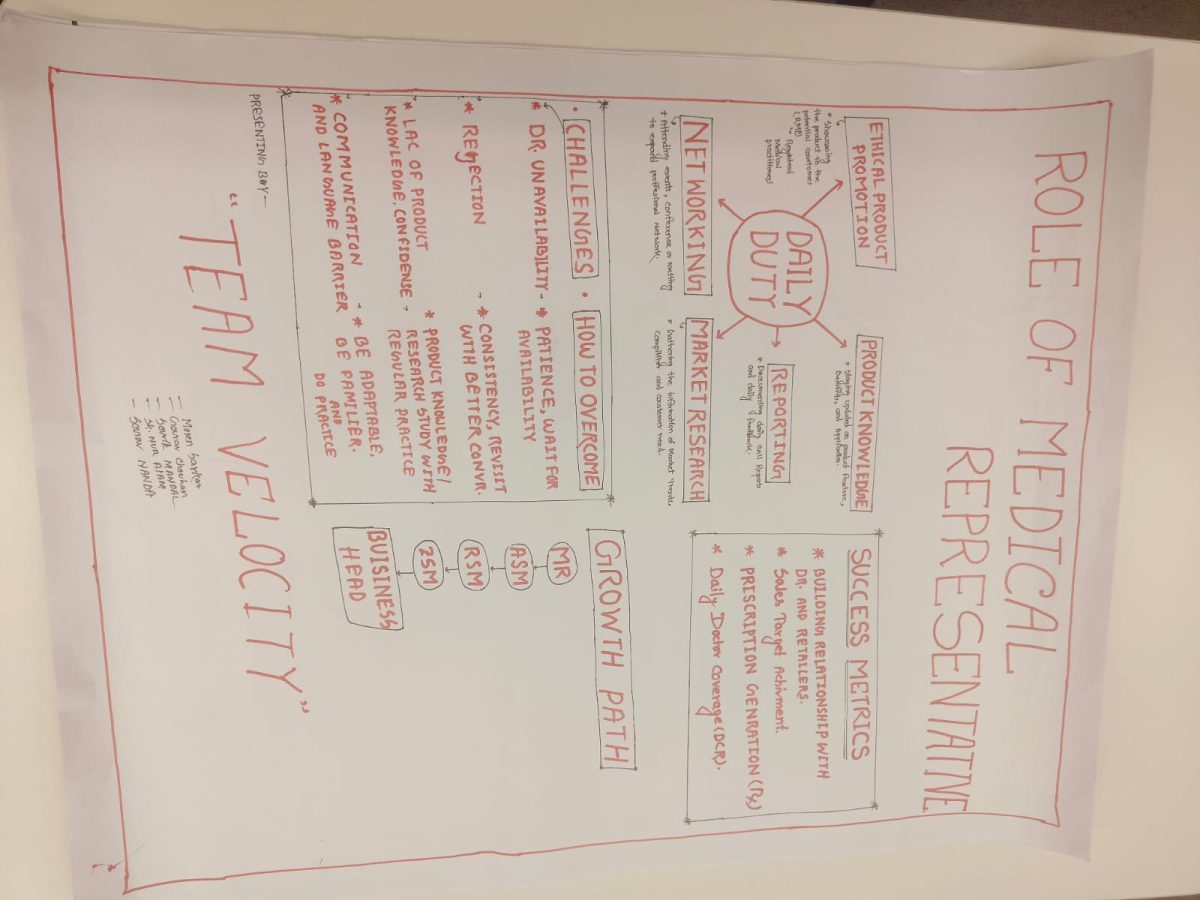 ROLE OF MEDICAL
REPRESENTATIVE
ETHICAL PRODUCT
PROMOTION
* Showcasing
the product to the
potential coustomer
(RMP)
Registered
Medical
practitioner)
PRODUCT KNOWLEDGE
* Staying updated on product feature,
Benefits, and Application.
DAILY
DUTY
NETWORKING
* Attending events, conference or meeting
to expand proffesional network.
MARKET RESEARCH
* Gathering the information of Market Trends,
Compitition and coustomer need.
REPORTING
* Documenting daily call Reports
and daily feedback.
SUCCESS METRICS
* BUILDING RELATIONSHIP WITH
DR. AND RETAILERS.
* Sales Target Achivment.
* PRISCRIPTION GENRATION (Rx)
* Daily Doctor Coverage (DCR).
• CHALLENGES
* DR. UNAVAILABILITY
* REJECTION
* LAC OF PRODUCT
KNOWLEDGE, CONFIDENSE
* COMMUNICATION
AND LANGUAGE BARRIER
• HOW TO OVERCOME
* PATIENCE, WAIT FOR
AVAILABILITY
* CONSISTENCY, REVISIT
WITH BETTER CONVR.
* PRODUCT KNOWLEDGE/
RESEARCH STUDY WITH
REGULAR PRACTICE
* BE ADAPTABLE,
BE FAMILIER.
AND
DO PRACTICE
GROWTH PATH
MR
ASM
RSM
ZSM
BUISINESS
HEAD
PRESENTING BOY -
"TEAM VELOCITY"
- Gourav Chauhan
- Souvik MANDAL
- SK. NUR ALAM
- Sourav NANDA